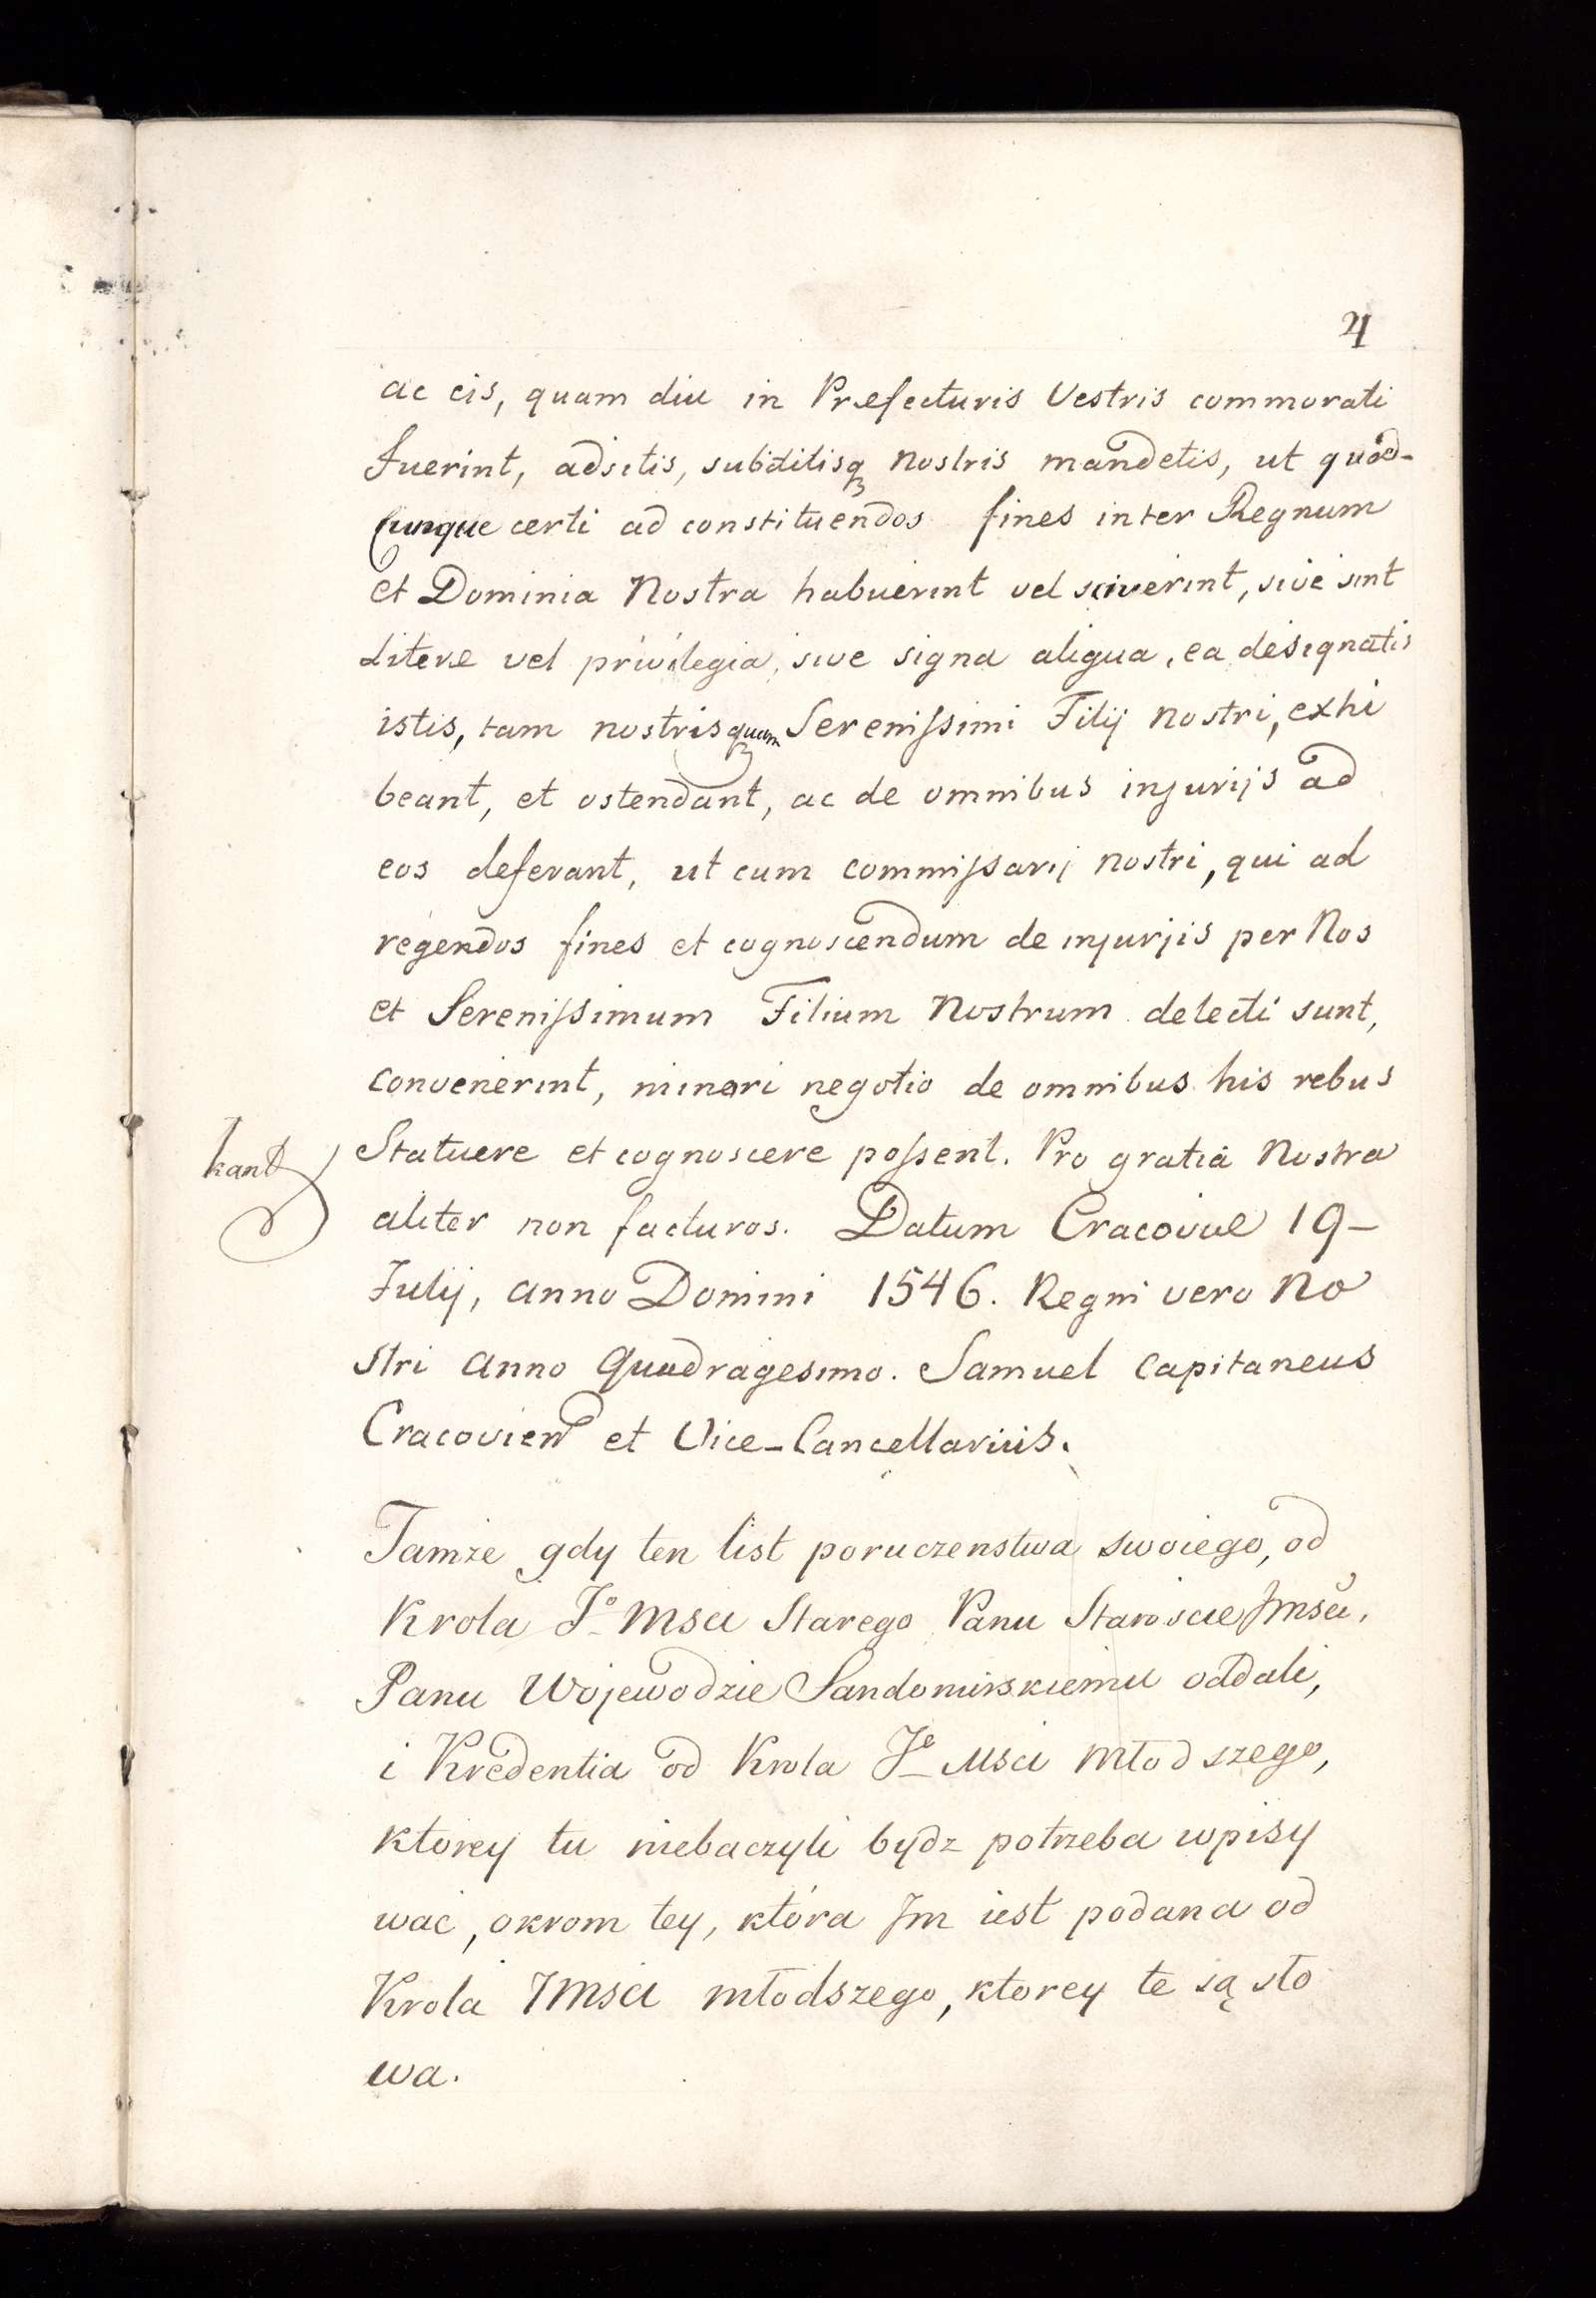 4
ac eis, quam diu in Præfecturis Vestris commorati
fuerint, adsitis, subditisq₃ nostris mandetis, ut quod-
cunque certi ad constituendos fines inter Regnum
et Dominia Nostra habuerint vel sciverint, sive sint
Literæ vel privilegia, sive signa aliqua, ea designatis
istis, tam nostris quam Serenissimi Filij nostri, exhi
beant, et ostendant, ac de omnibus injurijs ad
eos deferant, ut cum commissarij nostri, qui ad
regendos fines et cognoscendum de injurjis per Nos
et Serenissimum Filium Nostrum delecti sunt,
convenerint, minori negotio de omnibus his rebus
kant
Statuere et cognoscere possent. Pro gratia Nostra
aliter non facturos. Datum Cracoviæ 19-
Julij, anno Domini 1546. Regni vero No
stri anno Quadragesimo. Samuel Capitaneus
Cracovien et Vice-Cancellarius.
Tamże gdy ten list poruczenstwa swoiego, od
Krola Jº Msci Starego Panu Staroscie Jmsci,
Panu Wojewodzie Sandomirskiemu oddali,
i Kredentia od Krola Je Msci młodszego,
ktorey tu niebaczyli bydz potrzeba wpisy
wac, okrom tey, która Jm iest podana od
Krola JMsci młodszego, ktorey te są sło
wa.